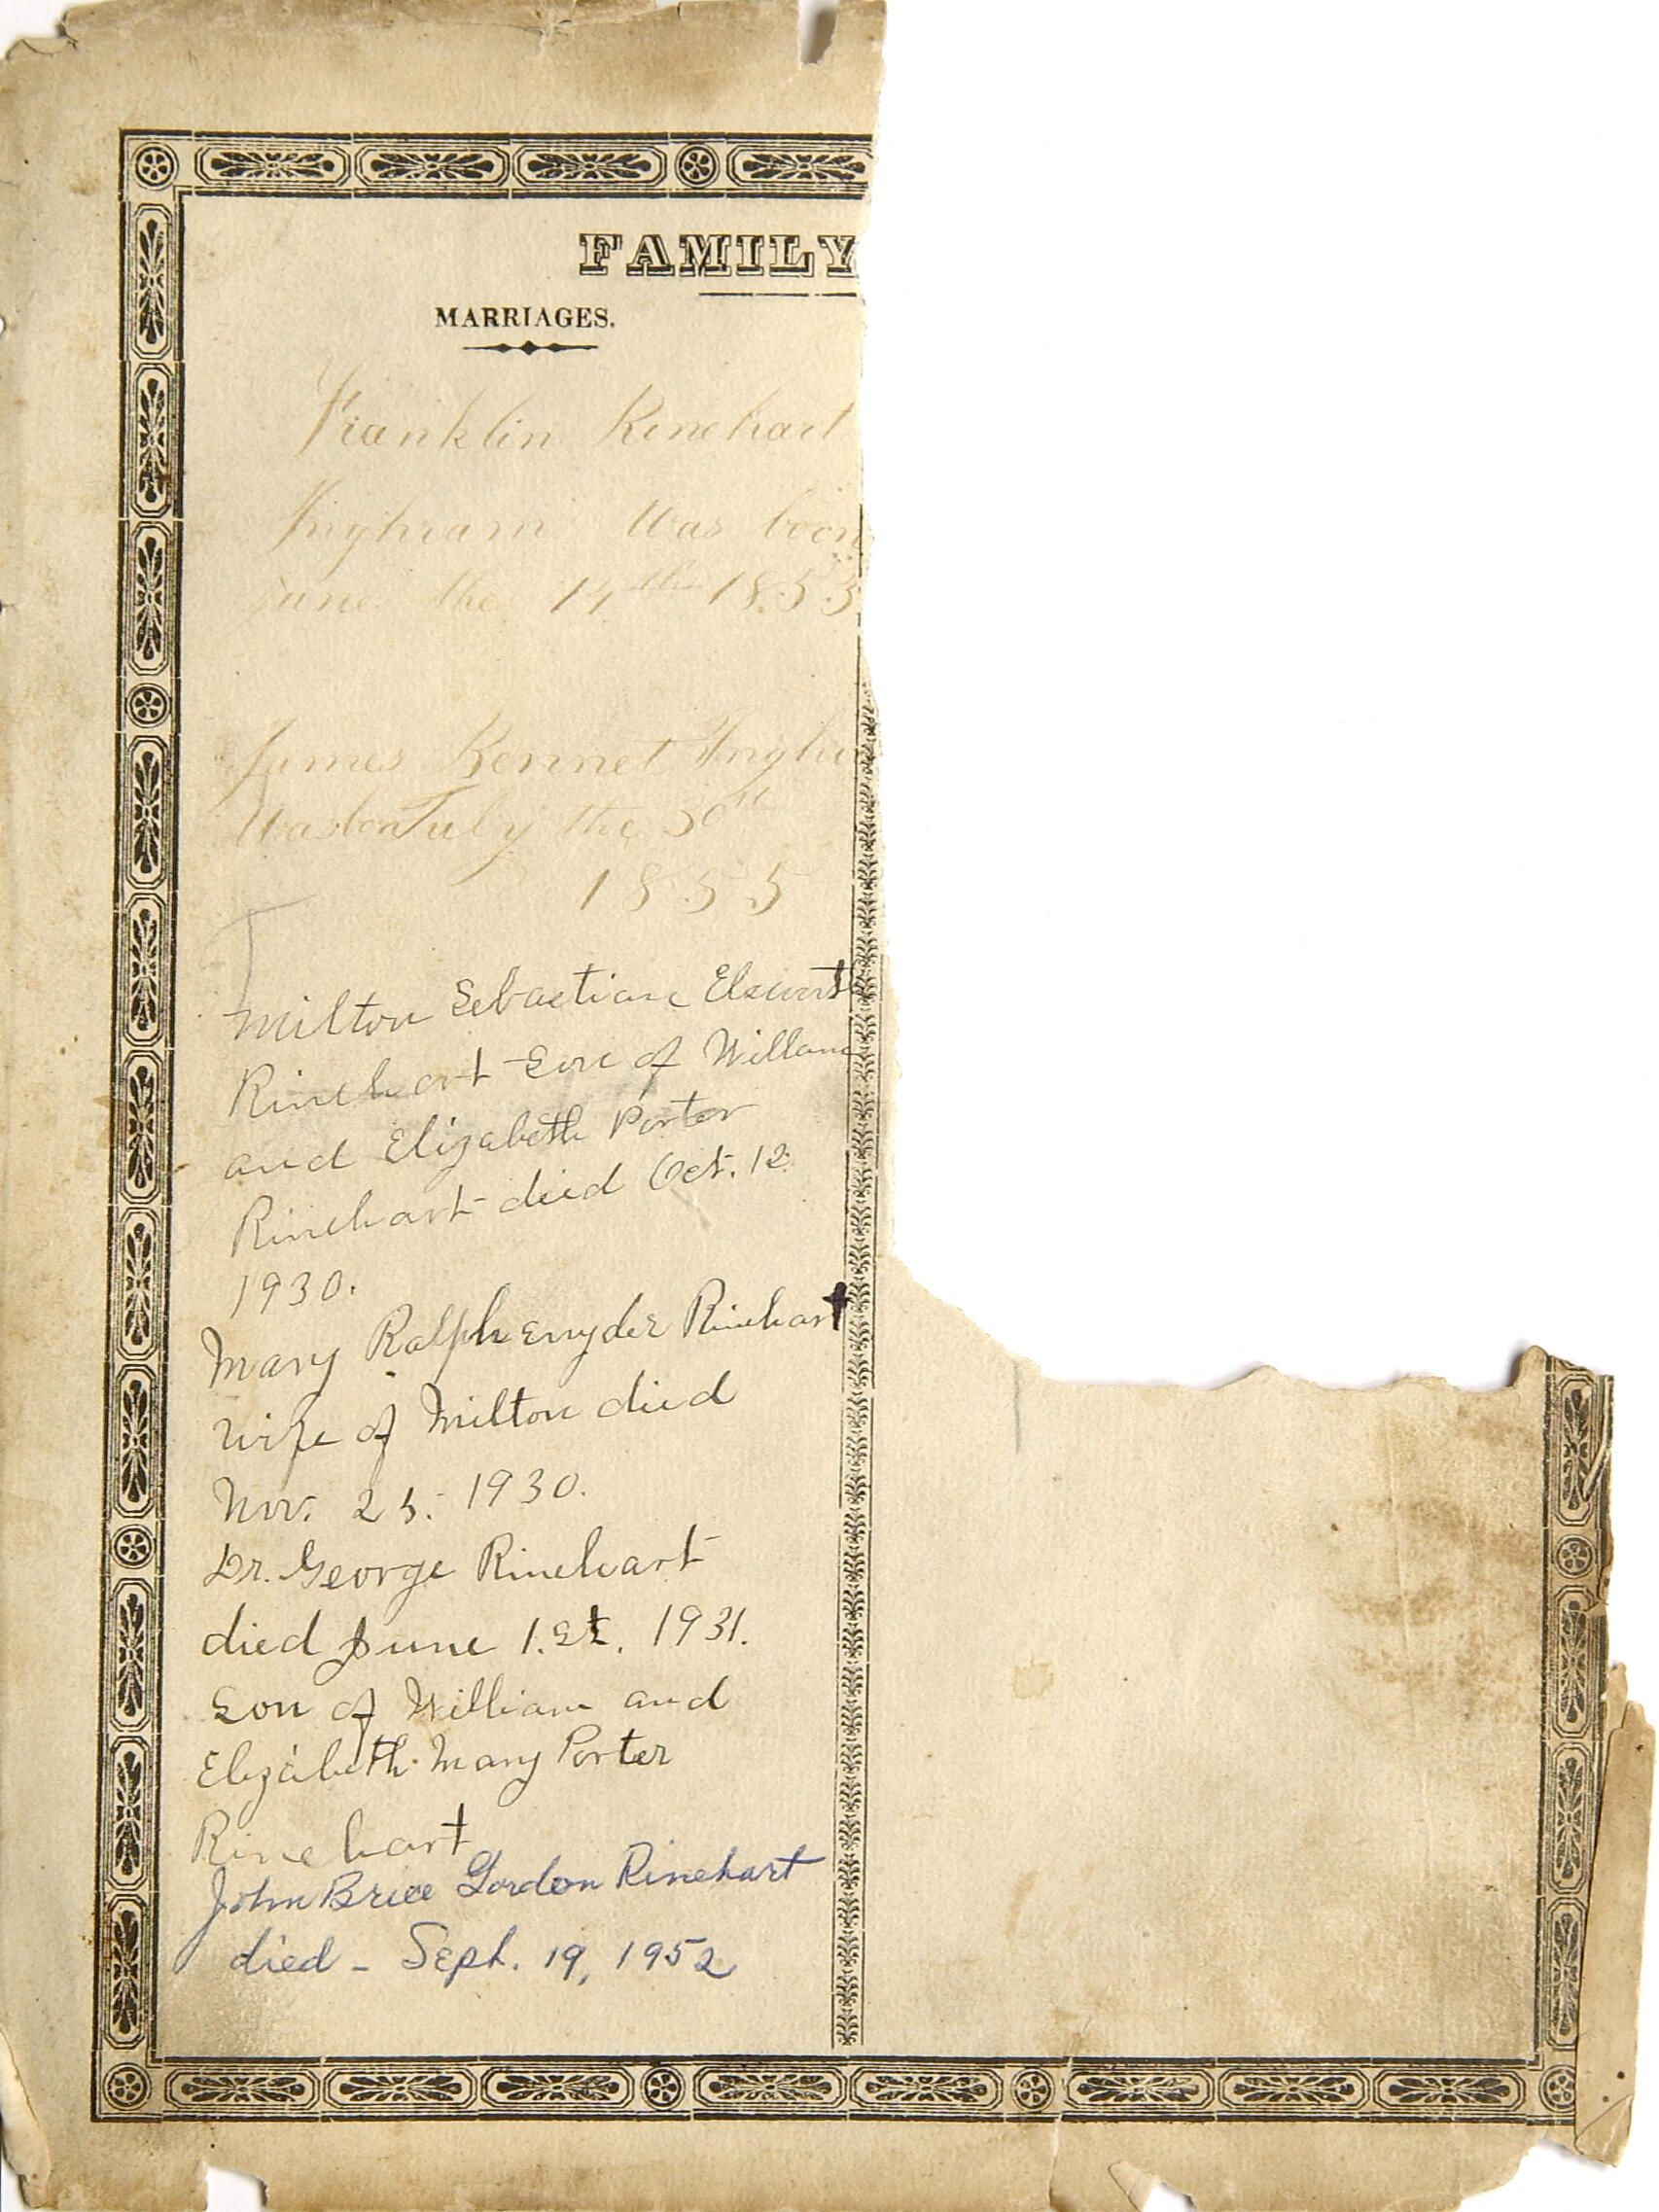 FAMILY
MARRIAGES.
Franklin Rinehart
Inghram Was born
June the 14th 1853
James Kennet Inghr
Was bon July the 30th
1855
Milton Sebastian Elsworth
Rinehart Son of Willam
and Elizabeth Porter
Rinehart died Oct. 12
1930.
Mary Ralphsnyder Rinehart
wife of Milton died
Nov. 25. 1930.
Dr. George Rinehart
died June 1.st. 1931.
Son of William and
Elizabeth Mary Porter
Rinehart
John Brice Gordon Rinehart
died - Sept. 19, 1952